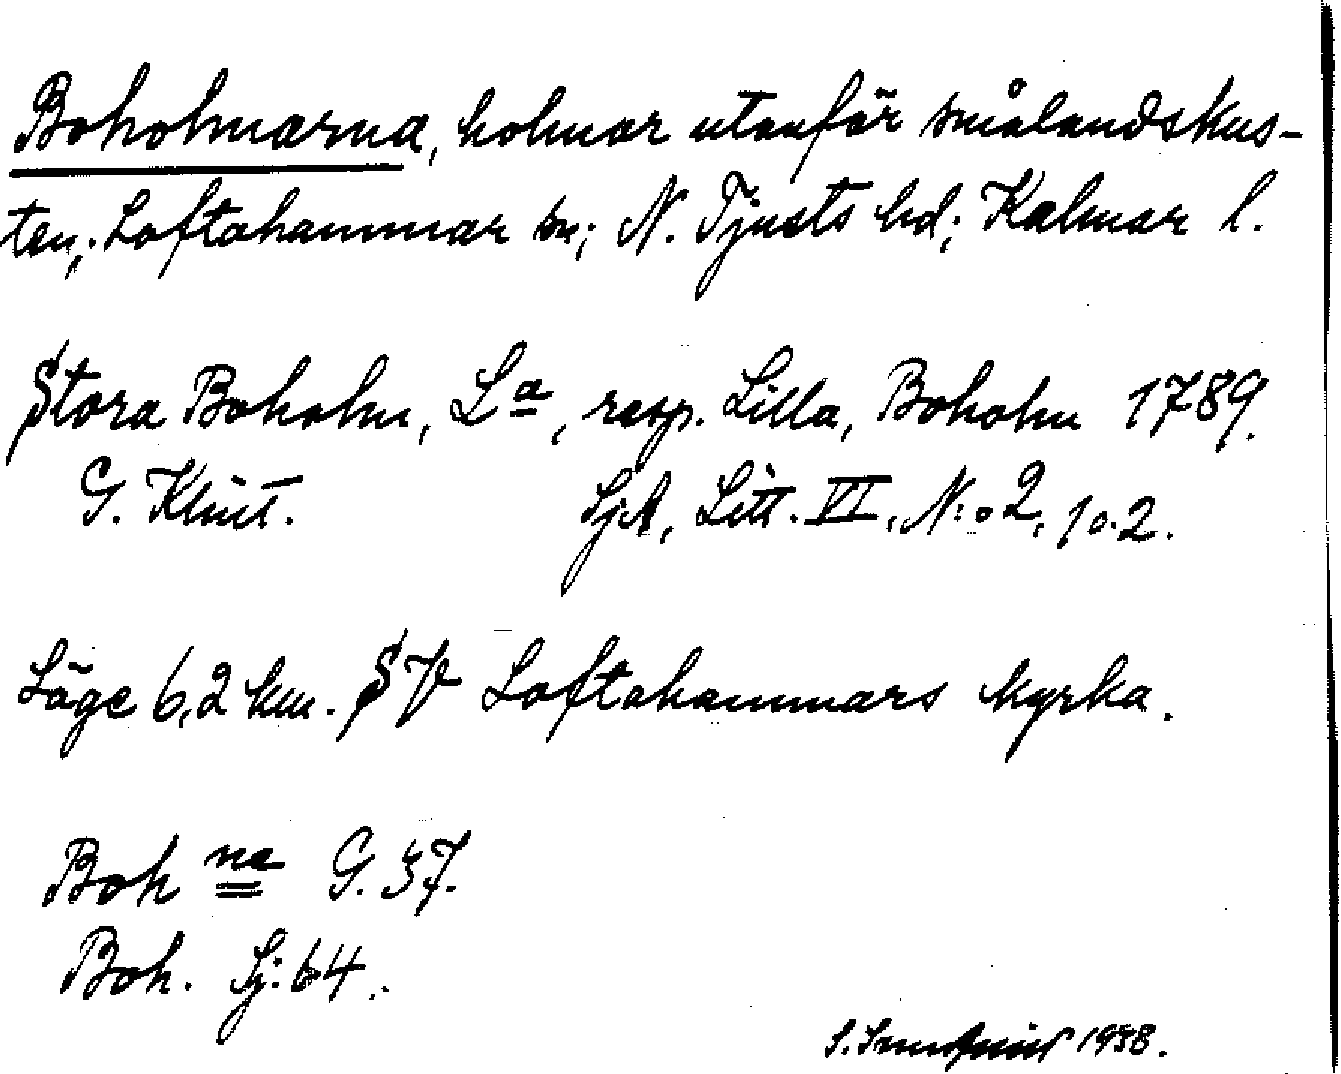 Boholmarna, holmar utanför smålandskus-
ten; Loftahammar sn; N. Tjusts hd; Kalmar l.
Stora Boholm, La, resp. Lilla, Boholm 1789.
G. Klint. SjA, Litt. VI, N:o 2, 10.2.
Läge 6,2 km. SV Loftahammars kyrka.
Boh na G. 37.
Boh. Sj. 64.
S. 1938.